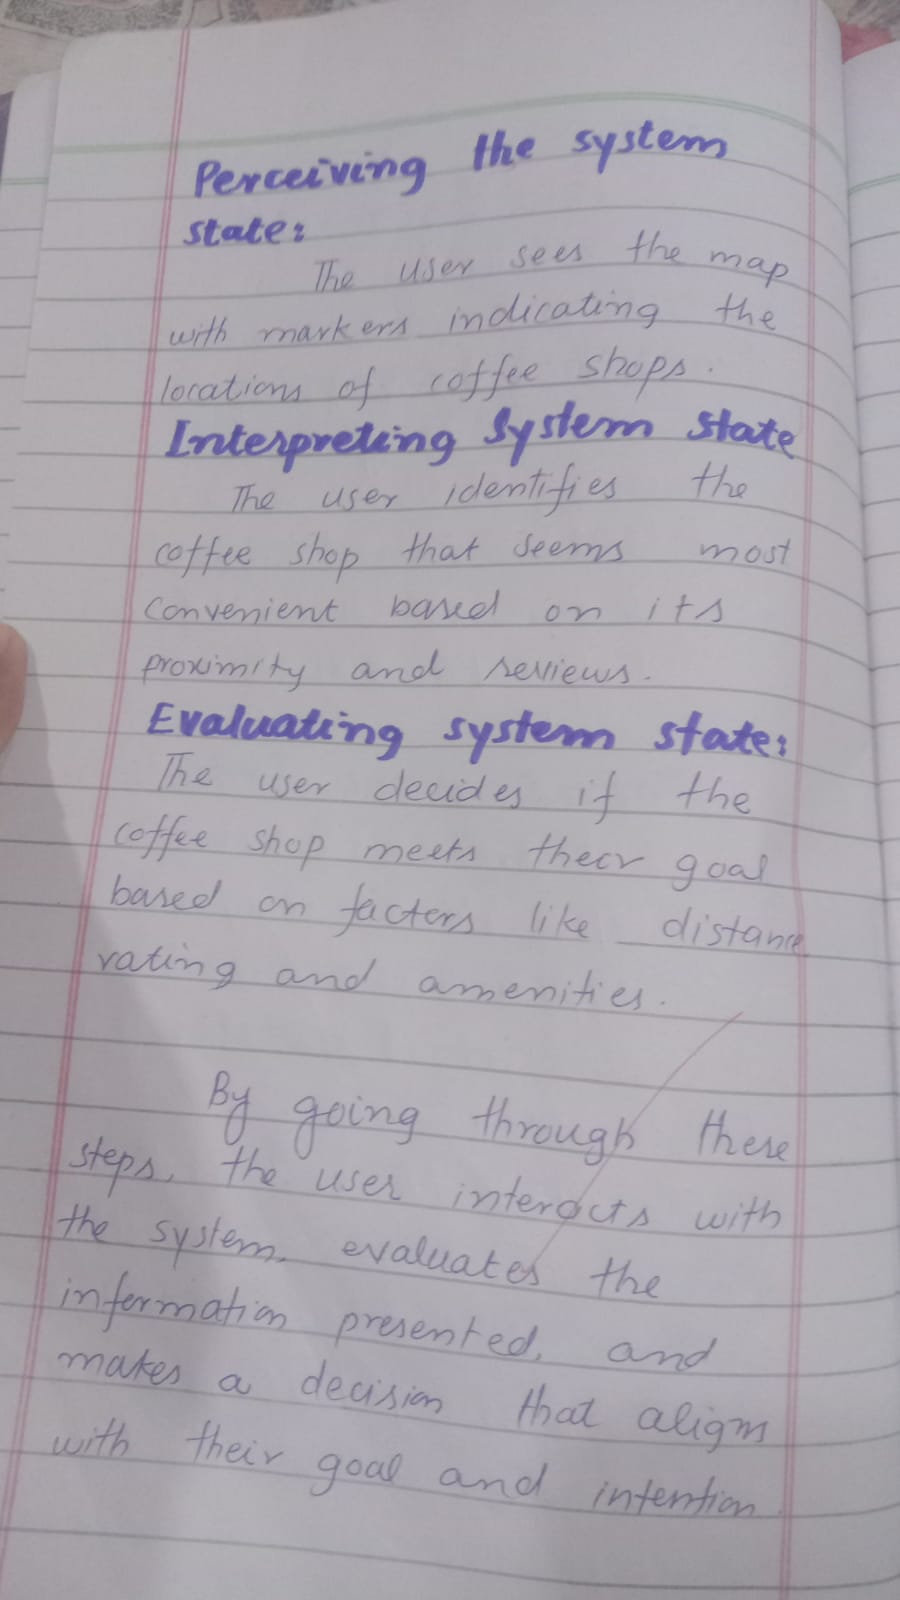 Perceiving the system
state:
The user sees the map
with markers indicating the
locations of coffee shops.
Interpreting System State
The user identifies the
coffee shop that seems most
convenient based on its
proximity and reviews.
Evaluating system state:
The user decides if the
coffee shop meets their goal
based on factors like distance
rating and amenities.
By going through these
steps, the user interacts with
the system, evaluates the
information presented, and
makes a decision that aligns
with their goal and intention